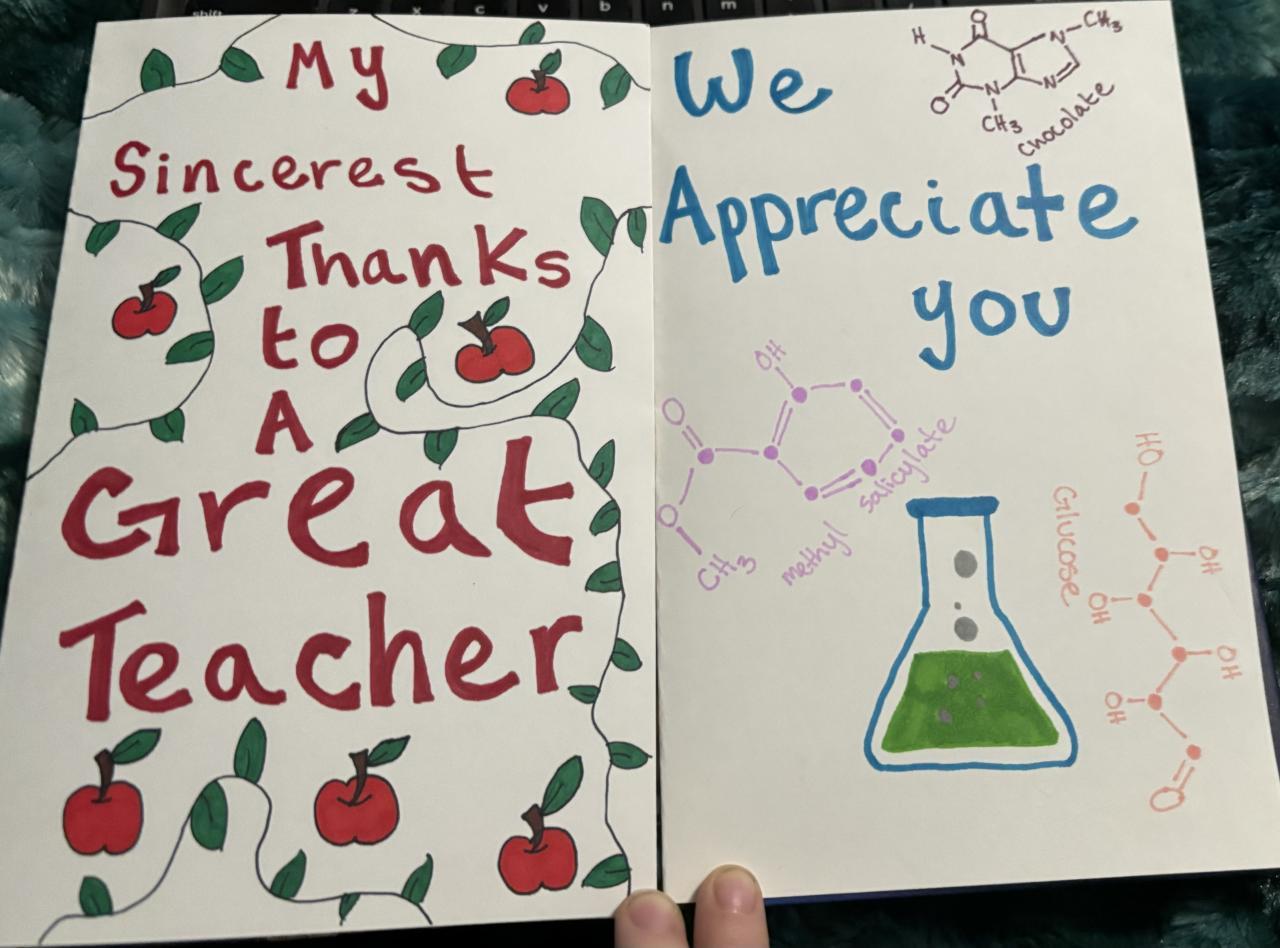 shift z x c v b n m
My
Sincerest
Thanks
to
A
Great
Teacher
We
Appreciate
you
H
N
O
N
CH3
O
N
N
CH3
chocolate
OH
O
O
CH3
methyl
salicylate
HO
Glucose
OH
OH
OH
OH
O